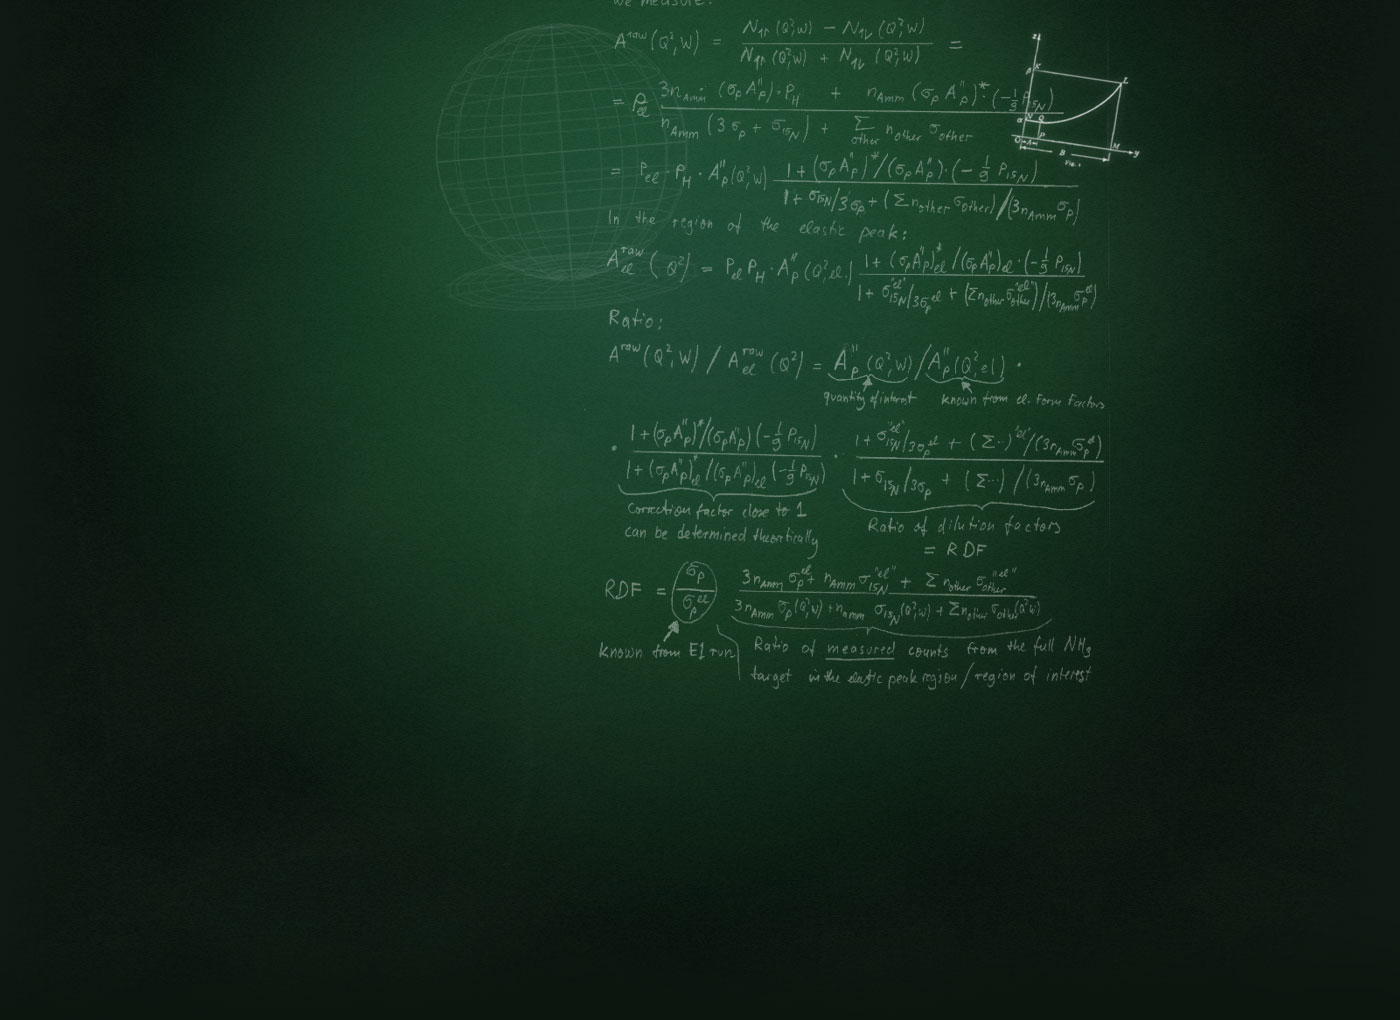 we measure:
A^raw (Q²,W) = (N↑⇑ (Q²,W) − N↑⇓ (Q²,W)) / (N↑⇑ (Q²,W) + N↑⇓ (Q²,W)) =
= P_el (3n_Amm (σ_p A_p^∥)·P_H + n_Amm (σ_p A_p^∥)*·(−1/9 P_15N)) / (n_Amm (3σ_p + σ_15N) + Σ_other n_other σ_other)
= P_el · P_H · A_p^∥ (Q²,W) (1 + (σ_p A_p^∥)*/(σ_p A_p^∥)·(−1/9 P_15N)) / (1 + σ_15N/3σ_p + (Σ n_other σ_other)/(3n_Amm σ_p))
In the region of the elastic peak:
A_el^raw (Q²) = P_el P_H · A_p^∥ (Q²,el.) (1 + (σ_p A_p^∥)*_el/(σ_p A_p^∥)_el·(−1/9 P_15N)) / (1 + σ_15N^"el"/3σ_p^el + (Σ n_other σ_other^"el")/(3n_Amm σ_p^el))
Ratio:
A^raw (Q²,W) / A_el^raw (Q²) = A_p^∥ (Q²,W) / A_p^∥ (Q²,el) ·
quantity of interest known from el. Form Factors
· (1 + (σ_p A_p^∥)*/(σ_p A_p^∥) (−1/9 P_15N)) / (1 + (σ_p A_p^∥)*_el/(σ_p A_p^∥)_el (−1/9 P_15N)) · (1 + σ_15N^"el"/3σ_p^el + (Σ···)^"el"/(3n_Amm σ_p^el)) / (1 + σ_15N/3σ_p + (Σ···)/(3n_Amm σ_p))
Correction factor close to 1
can be determined theoretically
Ratio of dilution factors
= RDF
RDF = (σ_p / σ_p^el) (3n_Amm σ_p^el + n_Amm σ_15N^"el" + Σ n_other σ_other^"el") / (3n_Amm σ_p (Q²,W) + n_Amm σ_15N (Q²,W) + Σ n_other σ_other (Q²,W))
known from E1 run
Ratio of measured counts from the full NH₃
target in the elastic peak region / region of interest